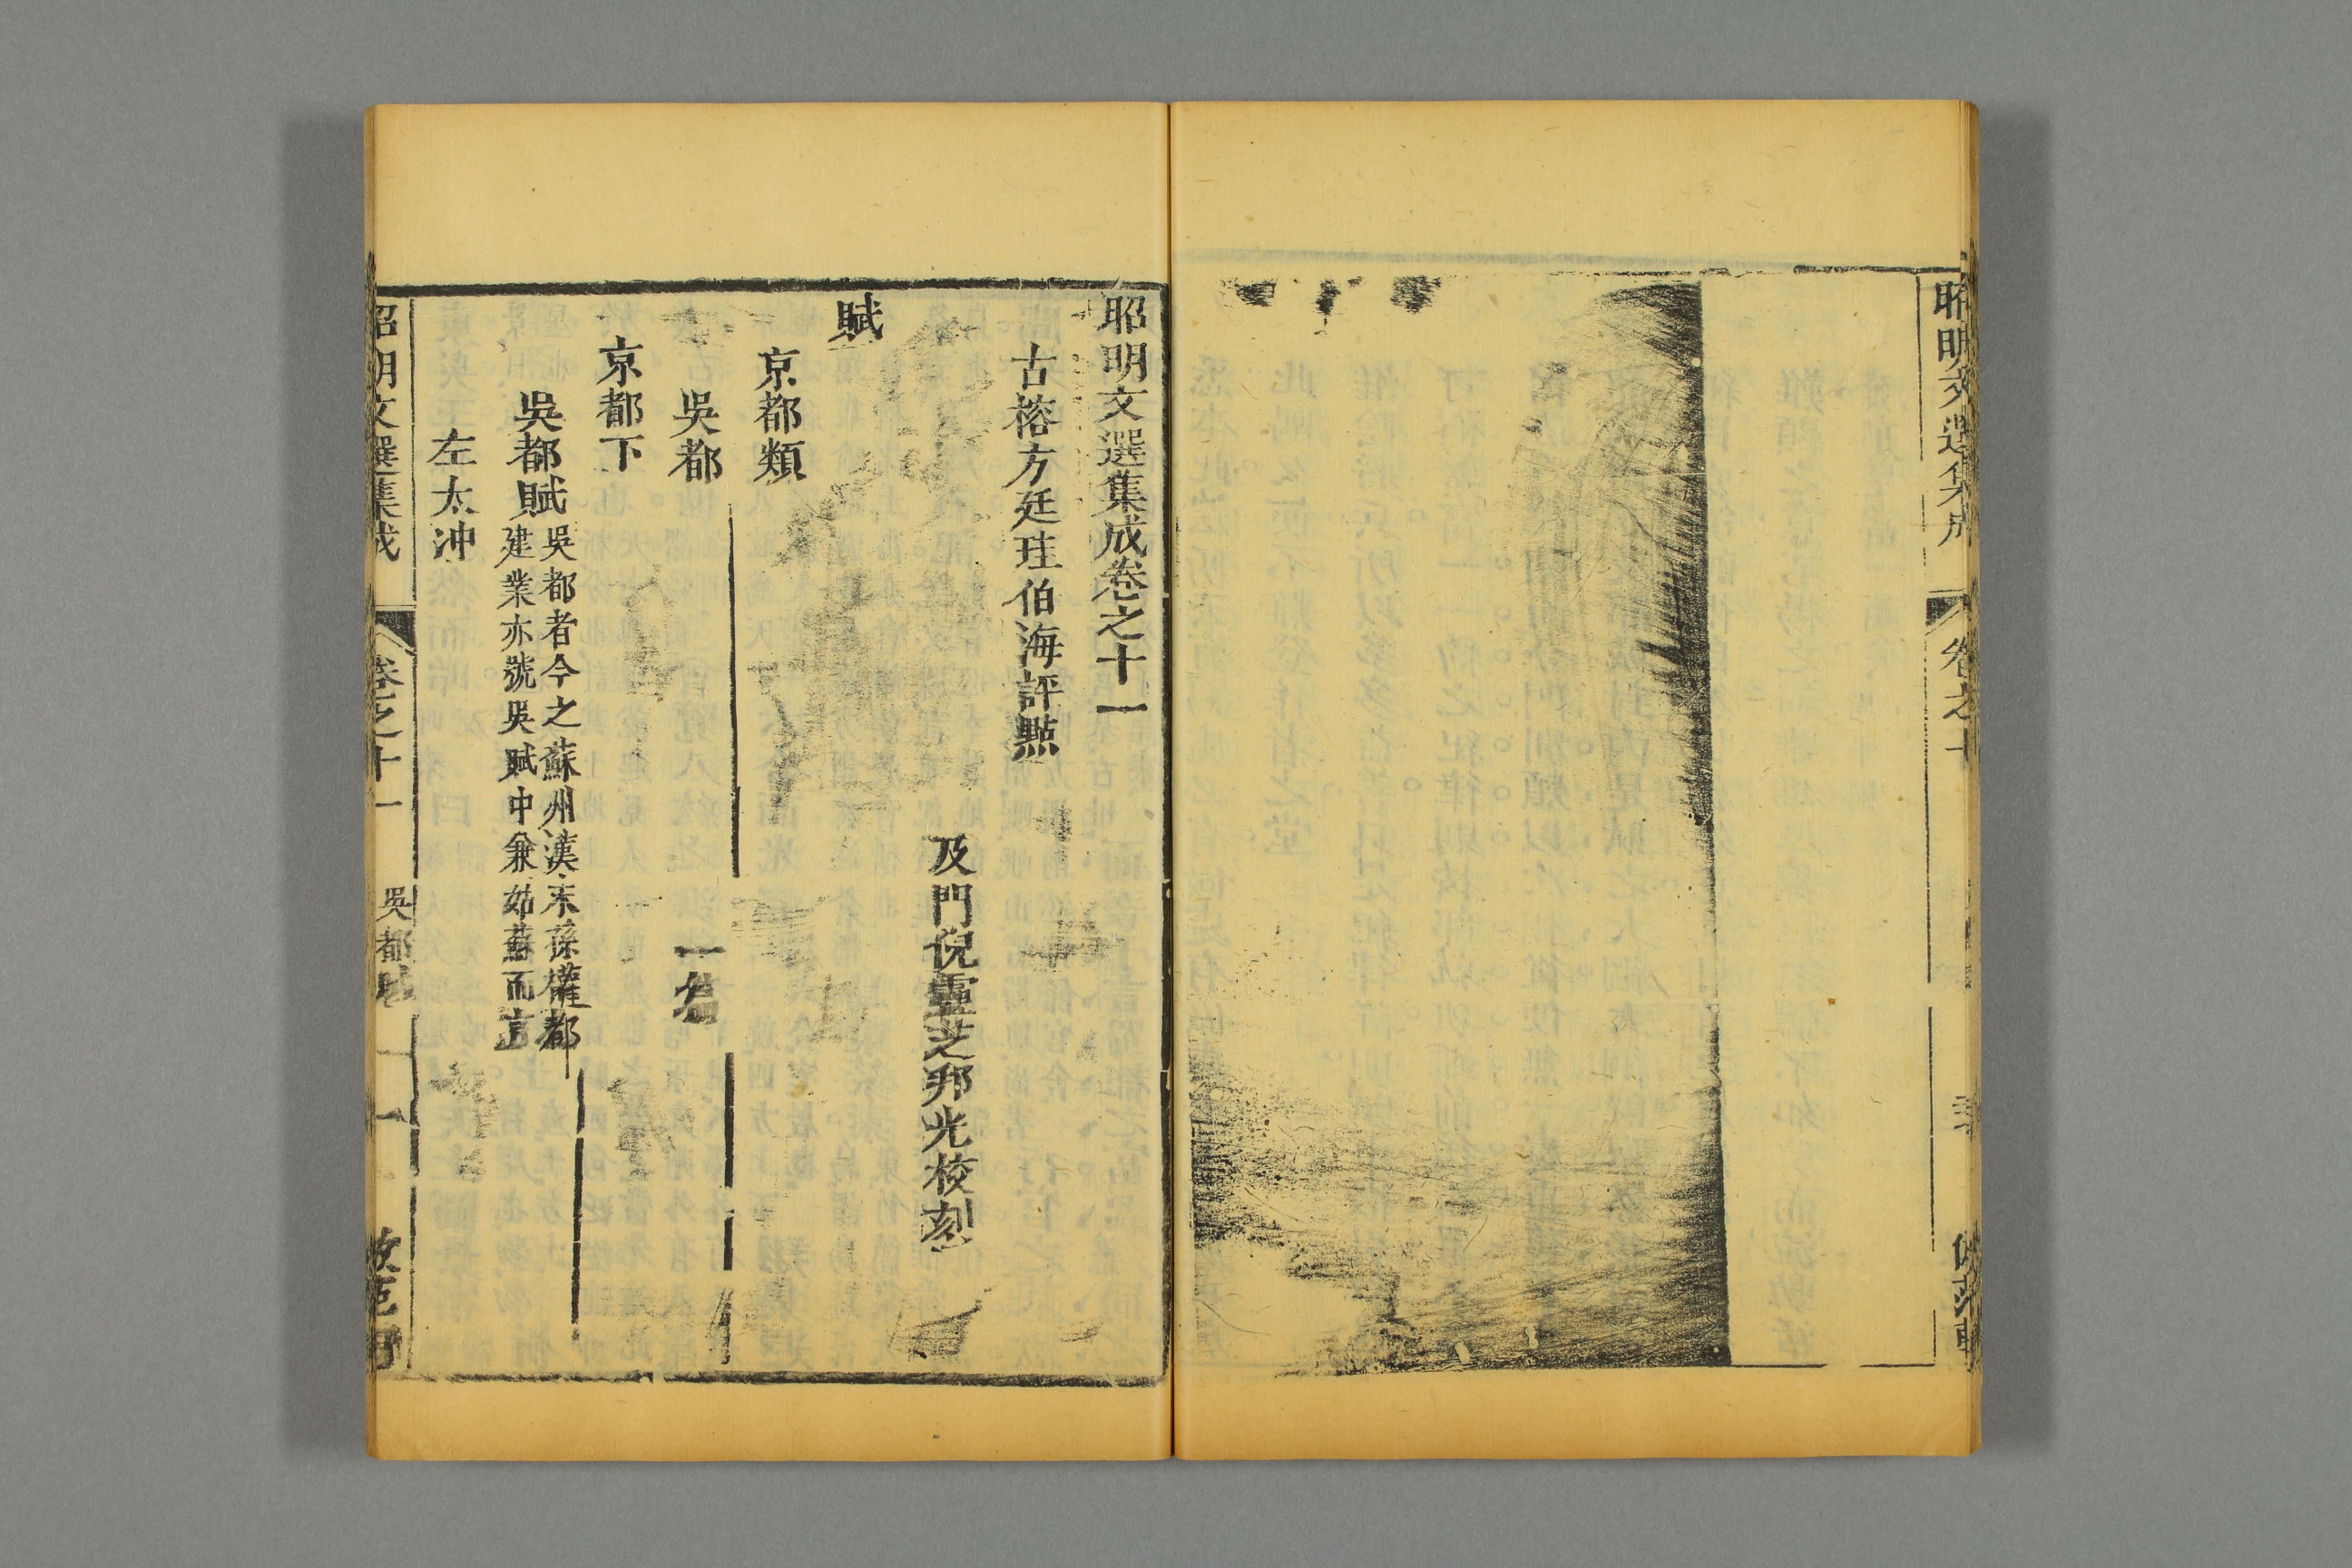 昭明文選集成
卷之十
昭明文選集成卷之十一
古榕方廷珪伯海評點
及門倪靈芝邦光校刻
賦
京都類
吳都
一篇
京都下
吳都賦
吳都者今之蘇州漢末孫權都
建業亦號吳賦中兼姑蘇而言
左太冲
昭明文選集成
卷之十一
吳都賦
一